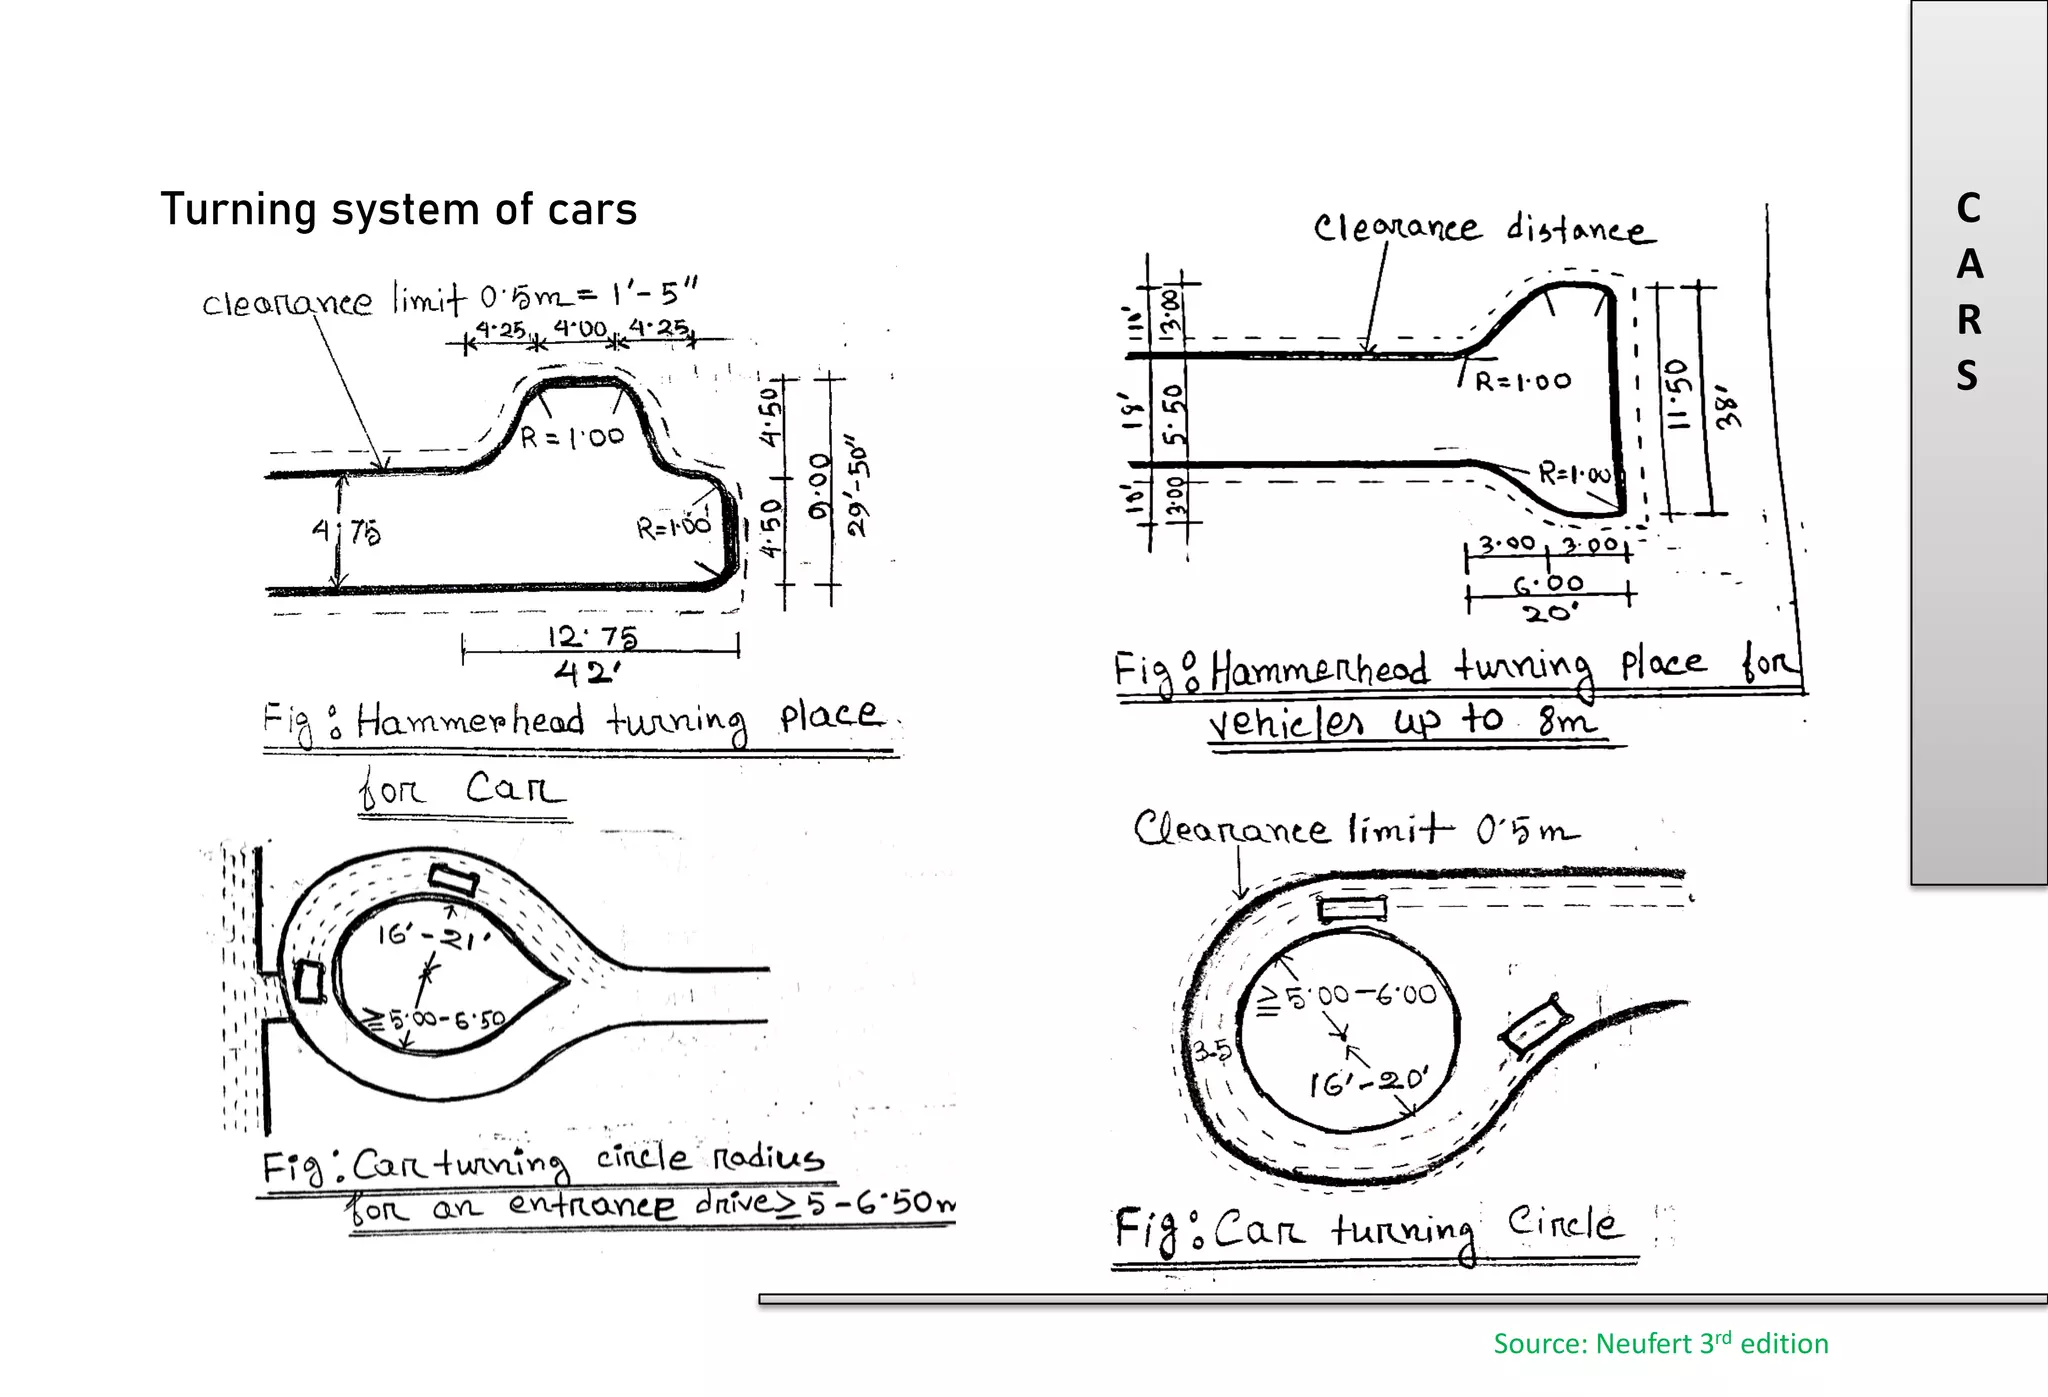 Turning system of cars
clearance limit 0.5m = 1'-5"
4.25 4.00 4.25
R=1.00
4.50
9.00
29'-50"
4.75
R=1.00
4.50
12.75
42'
Fig: Hammerhead turning place
for Car
clearance distance
3.00
R=1.00
18' 5.50
11.50
38'
R=1.00
10' 3.00
3.00 3.00
6.00
20'
Fig: Hammerhead turning place for
vehicles up to 8m
16'-21'
≧5.00-6.50
Fig: Car turning circle radius
for an entrance drive≥5-6.50m
Clearance limit 0.5m
≧5.00-6.00
3.5
16'-20'
Fig: Car turning Circle
C
A
R
S
Source: Neufert 3rd edition